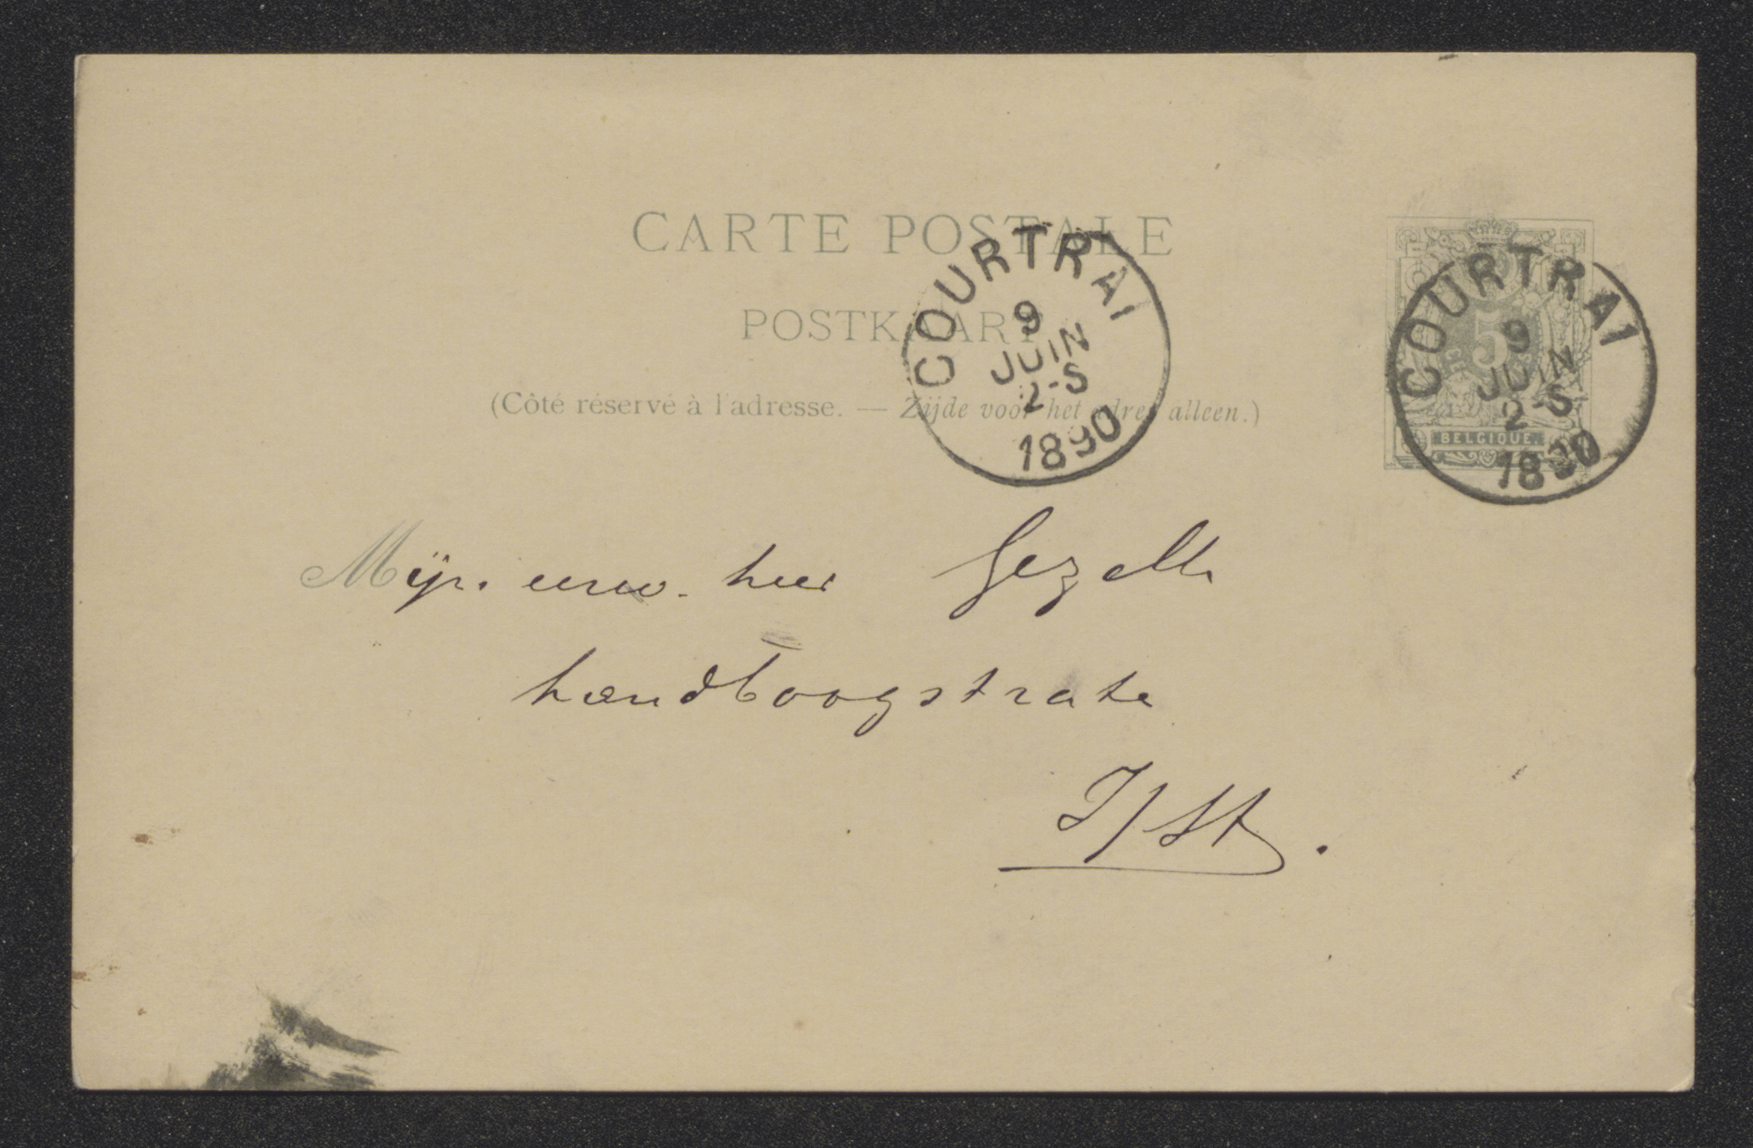 CARTE POSTALE
POSTKAART
(Côté réservé à l'adresse. — Zijde voor het adres alleen.)
COURTRAI
9
JUIN
2-S
1890
5
BELGIQUE
COURTRAI
9
JUIN
2-S
1890
Mijn. eerw. heer Gezelle
handboogstrate
I/St.